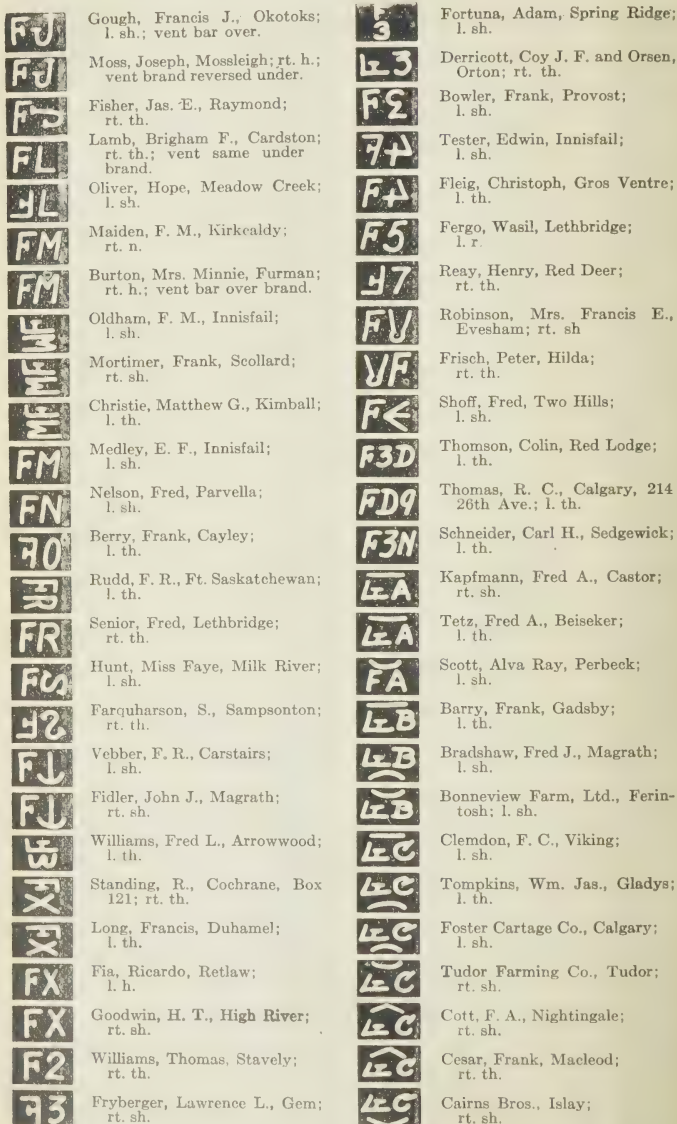 Gough, Francis J., Okotoks;
l. sh.; vent bar over.
Moss, Joseph, Mossleigh; rt. h.;
vent brand reversed under.
Fisher, Jas. E., Raymond;
rt. th.
Lamb, Brigham F., Cardston;
rt. th.; vent same under
brand.
Oliver, Hope, Meadow Creek;
l. sh.
Maiden, F. M., Kirkcaldy;
rt. n.
Burton, Mrs. Minnie, Furman;
rt. h.; vent bar over brand.
Oldham, F. M., Innisfail;
l. sh.
Mortimer, Frank, Scollard;
rt. sh.
Christie, Matthew G., Kimball;
l. th.
Medley, E. F., Innisfail;
l. sh.
Nelson, Fred, Parvella;
l. sh.
Berry, Frank, Cayley;
l. th.
Rudd, F. R., Ft. Saskatchewan;
l. th.
Senior, Fred, Lethbridge;
rt. th.
Hunt, Miss Faye, Milk River;
l. sh.
Farquharson, S., Sampsonton;
rt. th.
Vebber, F. R., Carstairs;
l. sh.
Fidler, John J., Magrath;
rt. sh.
Williams, Fred L., Arrowwood;
l. th.
Standing, R., Cochrane, Box
121; rt. th.
Long, Francis, Duhamel;
l. th.
Fia, Ricardo, Retlaw;
l. h.
Goodwin, H. T., High River;
rt. sh.
Williams, Thomas, Stavely;
rt. th.
Fryberger, Lawrence L., Gem;
rt. sh.
Fortuna, Adam, Spring Ridge;
l. sh.
Derricott, Coy J. F. and Orsen,
Orton; rt. th.
Bowler, Frank, Provost;
l. sh.
Tester, Edwin, Innisfail;
l. sh.
Fleig, Christoph, Gros Ventre;
l. th.
Fergo, Wasil, Lethbridge;
l. r.
Reay, Henry, Red Deer;
rt. th.
Robinson, Mrs. Francis E.,
Evesham; rt. sh
Frisch, Peter, Hilda;
rt. th.
Shoff, Fred, Two Hills;
l. sh.
Thomson, Colin, Red Lodge;
l. th.
Thomas, R. C., Calgary, 214
26th Ave.; l. th.
Schneider, Carl H., Sedgewick;
l. th.
Kapfmann, Fred A., Castor;
rt. sh.
Tetz, Fred A., Beiseker;
l. th.
Scott, Alva Ray, Perbeck;
l. sh.
Barry, Frank, Gadsby;
l. th.
Bradshaw, Fred J., Magrath;
l. th.
Bonneview Farm, Ltd., Ferin-
tosh; l. sh.
Clemdon, F. C., Viking;
l. sh.
Tompkins, Wm. Jas., Gladys;
l. th.
Foster Cartage Co., Calgary;
l. sh.
Tudor Farming Co., Tudor;
rt. sh.
Cott, F. A., Nightingale;
rt. sh.
Cesar, Frank, Macleod;
rt. th.
Cairns Bros., Islay;
rt. sh.